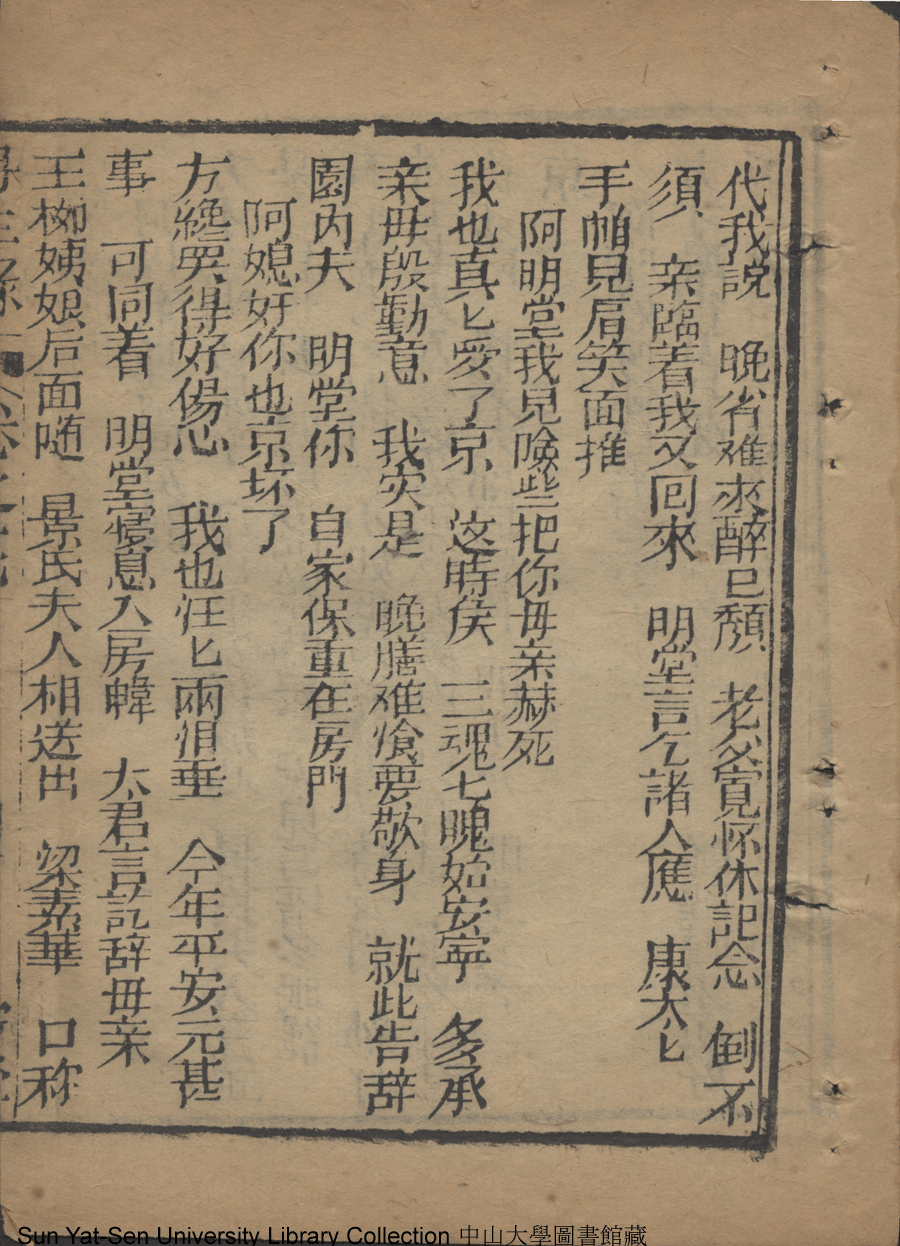 代我説　晚省难來醉已頹　老父寬怀休記念　倒不
須　亲臨着我又回來　明堂言乞諸人應　康太匕
手帕見眉笑面推
阿明堂我見噞些把你毋亲赫死
我也真匕愛了京　这時侯　三魂七魄始安寧　多承
亲毋段勤意　我实是　晚膳难飡要敬身　就此告辞
園內夫　明堂你　自家保重在房門
阿媳好你也京坏了
方纔哭得好傷心　我也汪匕兩泪垂　今年平安元甚
事　可同着　明堂寝息入房幃　太君言訖辞毋亲
王柳姨娘后面随　景氏夫人相送出　梁素華　口称
Sun Yat-Sen University Library Collection 中山大學圖書館藏